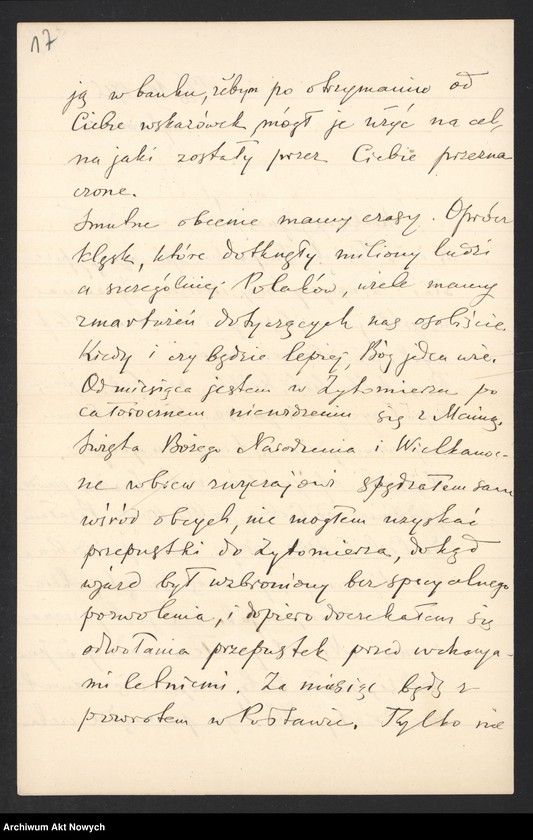 17
ją w banku, żebym po otrzymaniu od
Ciebie wskazówek mógł je użyć na cel,
na jaki zostały przez Ciebie przezna
czone.
Smutne obecnie mamy czasy. Oprócz
klęsk, które dotknęły miliony ludzi
a szczególniej Polaków, wiele mamy
zmartwień dotyczących nas osobiście.
Kiedy i czy będzie lepiej, Bóg jeden wie.
Od miesiąca jestem w Żytomierzu po
całorocznem niewidzeniu się z Mamą.
Święta Bożego Narodzenia i Wielkanoc-
ne wbrew zwyczajowi spędzałem sam
wśród obcych, nie mogłem uzyskać
przepustki do Żytomierza, dokąd
wjazd był wzbroniony bez specyalnego
pozwolenia, i dopiero doczekałem się
odwołania przepustek przed wakacya-
mi letniemi. Za miesiąc będę z
powrotem w Połtawie. Tylko nie
Archiwum Akt Nowych